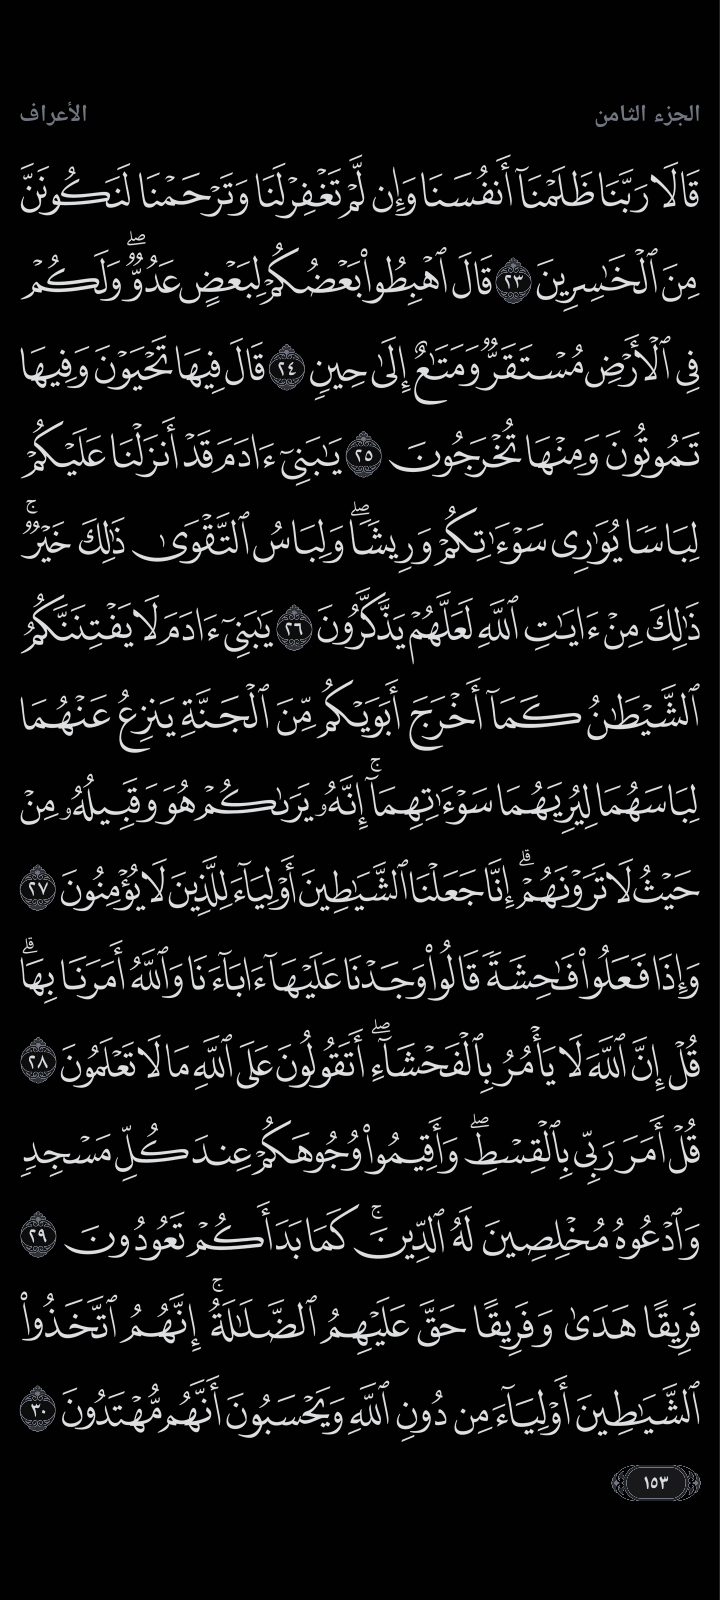 الجزء الثامن
الأعراف
قَالَا رَبَّنَا ظَلَمْنَآ أَنفُسَنَا وَإِن لَّمْ تَغْفِرْ لَنَا وَتَرْحَمْنَا لَنَكُونَنَّ
مِنَ ٱلْخَٰسِرِينَ ٢٣ قَالَ ٱهْبِطُوا۟ بَعْضُكُمْ لِبَعْضٍ عَدُوٌّ ۖ وَلَكُمْ
فِى ٱلْأَرْضِ مُسْتَقَرٌّ وَمَتَٰعٌ إِلَىٰ حِينٍ ٢٤ قَالَ فِيهَا تَحْيَوْنَ وَفِيهَا
تَمُوتُونَ وَمِنْهَا تُخْرَجُونَ ٢٥ يَٰبَنِىٓ ءَادَمَ قَدْ أَنزَلْنَا عَلَيْكُمْ
لِبَاسًا يُوَٰرِى سَوْءَٰتِكُمْ وَرِيشًا ۖ وَلِبَاسُ ٱلتَّقْوَىٰ ذَٰلِكَ خَيْرٌ ۚ
ذَٰلِكَ مِنْ ءَايَٰتِ ٱللَّهِ لَعَلَّهُمْ يَذَّكَّرُونَ ٢٦ يَٰبَنِىٓ ءَادَمَ لَا يَفْتِنَنَّكُمُ
ٱلشَّيْطَٰنُ كَمَآ أَخْرَجَ أَبَوَيْكُم مِّنَ ٱلْجَنَّةِ يَنزِعُ عَنْهُمَا
لِبَاسَهُمَا لِيُرِيَهُمَا سَوْءَٰتِهِمَآ ۚ إِنَّهُۥ يَرَىٰكُمْ هُوَ وَقَبِيلُهُۥ مِنْ
حَيْثُ لَا تَرَوْنَهُمْ ۗ إِنَّا جَعَلْنَا ٱلشَّيَٰطِينَ أَوْلِيَآءَ لِلَّذِينَ لَا يُؤْمِنُونَ ٢٧
وَإِذَا فَعَلُوا۟ فَٰحِشَةً قَالُوا۟ وَجَدْنَا عَلَيْهَآ ءَابَآءَنَا وَٱللَّهُ أَمَرَنَا بِهَا ۗ
قُلْ إِنَّ ٱللَّهَ لَا يَأْمُرُ بِٱلْفَحْشَآءِ ۖ أَتَقُولُونَ عَلَى ٱللَّهِ مَا لَا تَعْلَمُونَ ٢٨
قُلْ أَمَرَ رَبِّى بِٱلْقِسْطِ ۖ وَأَقِيمُوا۟ وُجُوهَكُمْ عِندَ كُلِّ مَسْجِدٍ
وَٱدْعُوهُ مُخْلِصِينَ لَهُ ٱلدِّينَ ۚ كَمَا بَدَأَكُمْ تَعُودُونَ ٢٩
فَرِيقًا هَدَىٰ وَفَرِيقًا حَقَّ عَلَيْهِمُ ٱلضَّلَٰلَةُ ۚ إِنَّهُمُ ٱتَّخَذُوا۟
ٱلشَّيَٰطِينَ أَوْلِيَآءَ مِن دُونِ ٱللَّهِ وَيَحْسَبُونَ أَنَّهُم مُّهْتَدُونَ ٣٠
١٥٣